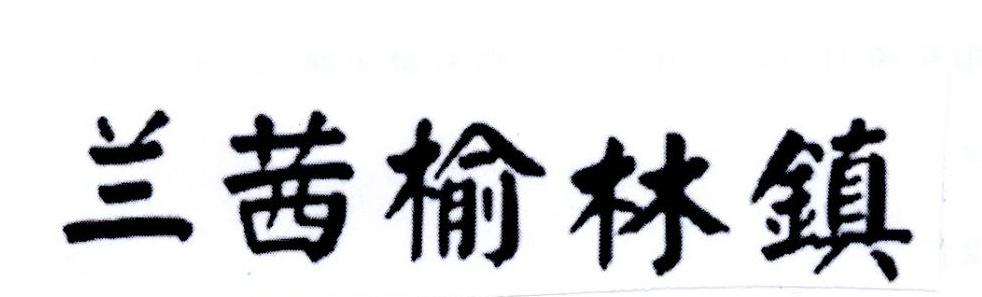 兰茜榆林鎮